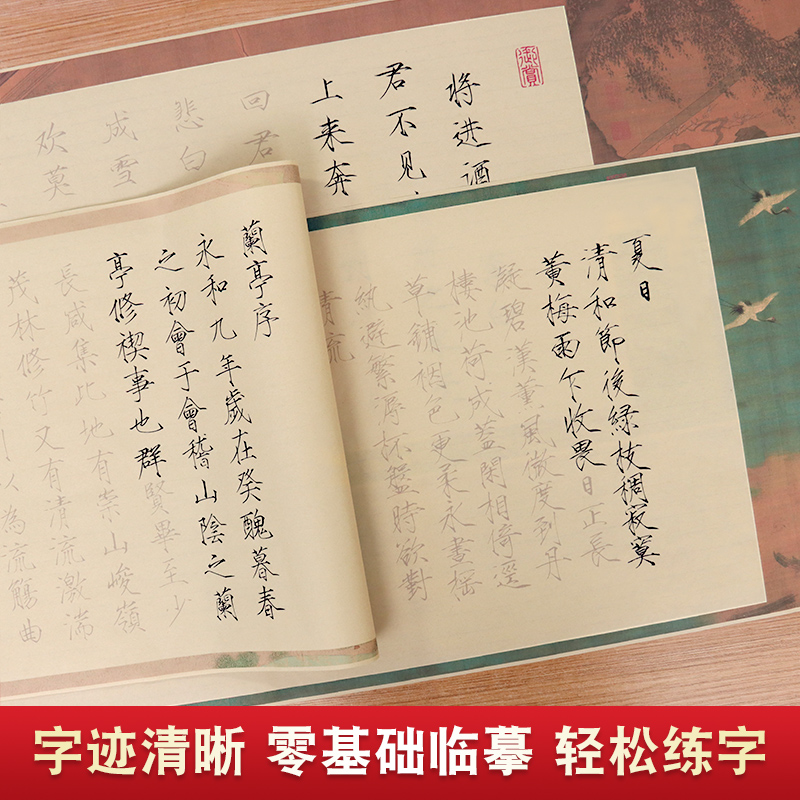 御赏
将进酒
君不见
上来奔
回君
悲白
成雪
欢莫
夏日
清和節後緑枝稠寂寞
黃梅雨乍收畏日正長
凝碧漢薰風微度到丹
樓池荷成蓋閑相倚逕
草鋪裀色更柔永晝搖
紈避繁溽杯盤時欲對
清流
蘭亭序
永和九年歲在癸醜暮春
之初會于會稽山陰之蘭
亭修禊事也群賢畢至少
長咸集此地有崇山峻嶺
茂林修竹又有清流激湍
引以為流觴曲
字迹清晰 零基础临摹 轻松练字